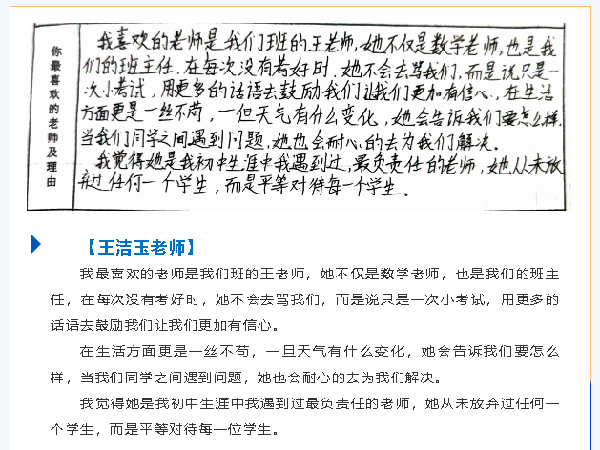 你最喜欢的老师及理由
我喜欢的老师是我们班的王老师,她不仅是数学老师,也是我
们的班主任.在每次没有考好时,她不会去骂我们,而是说只是一
次小考试,用更多的话语去鼓励我们让我们更加有信心,在生活
方面更是一丝不苟,一但天气有什么变化,她会告诉我们要怎么样,
当我们同学之间遇到问题,她也会耐心的去为我们解决。
我觉得她是我初中生涯中我遇到过,最负责任的老师,她从未放
弃过任何一个学生,而是平等对待每一个学生。
【王洁玉老师】
我最喜欢的老师是我们班的王老师，她不仅是数学老师，也是我们的班主
任，在每次没有考好时，她不会去骂我们，而是说只是一次小考试，用更多的
话语去鼓励我们让我们更加有信心。
在生活方面更是一丝不苟，一旦天气有什么变化，她会告诉我们要怎么
样，当我们同学之间遇到问题，她也会耐心的去为我们解决。
我觉得她是我初中生涯中我遇到过最负责任的老师，她从未放弃过任何一
个学生，而是平等对待每一位学生。